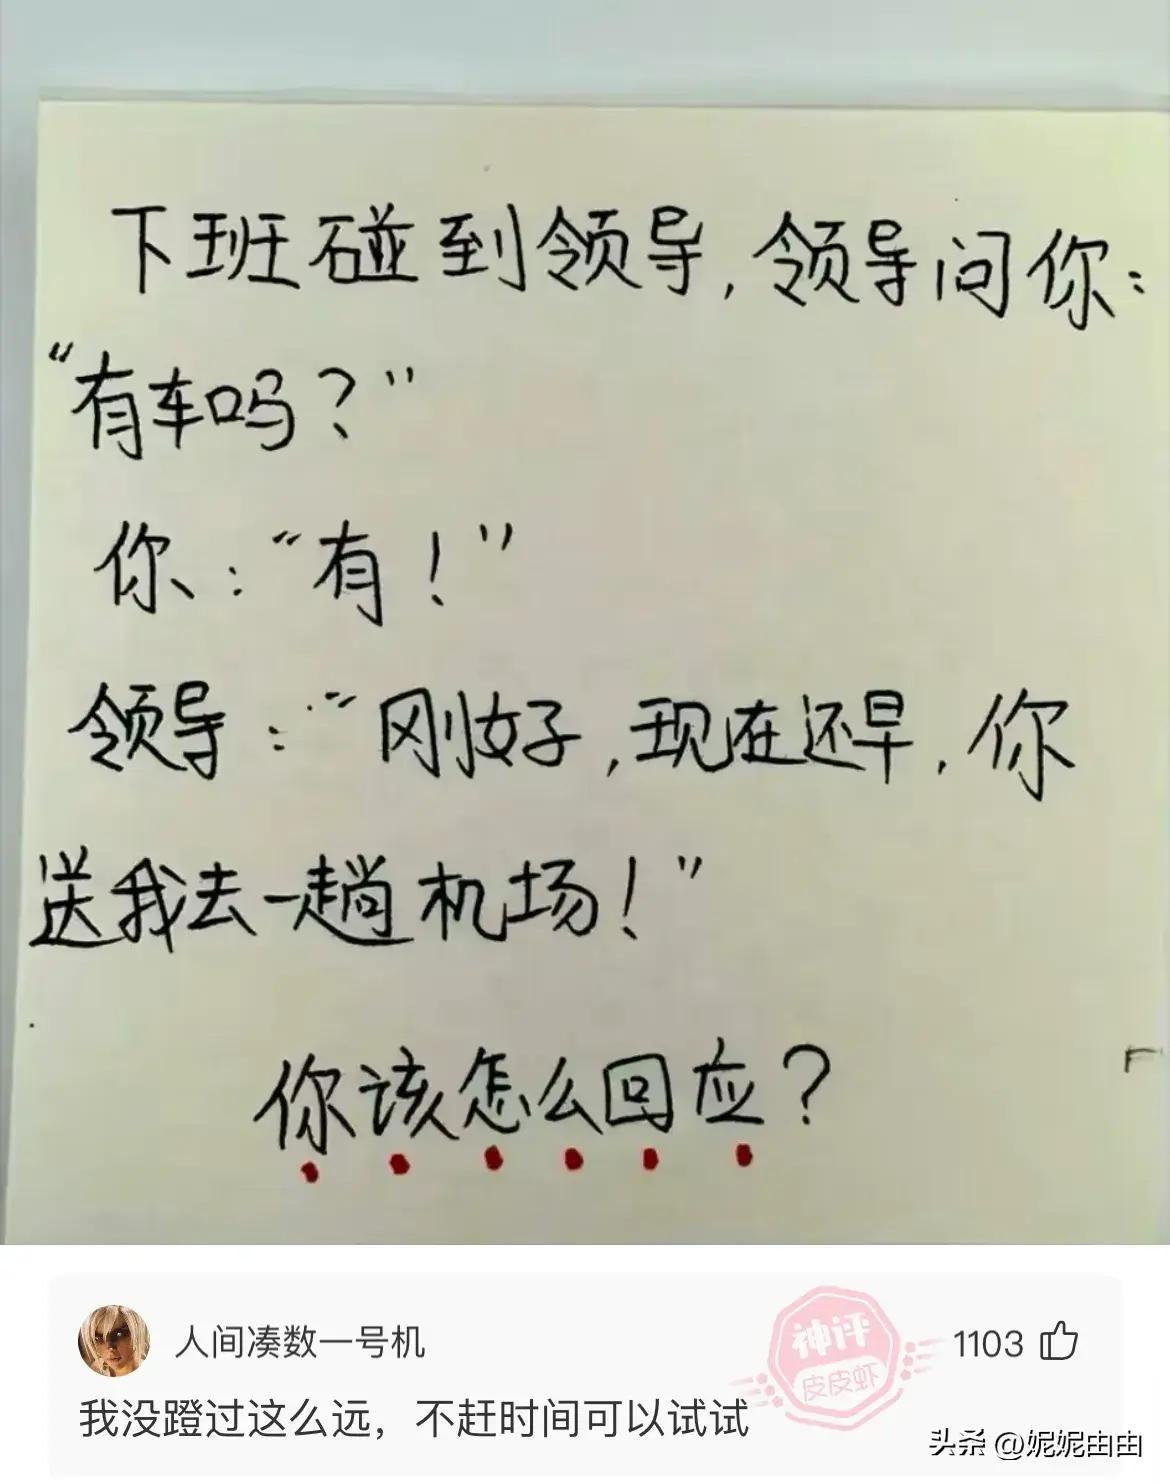 下班碰到领导,领导问你:
“有车吗?”
你:“有!”
领导:“刚好,现在还早,你
送我去一趟机场!”
你该怎么回应?
人间凑数一号机
神评
皮皮虾
1103
我没蹬过这么远，不赶时间可以试试
头条 @妮妮由由